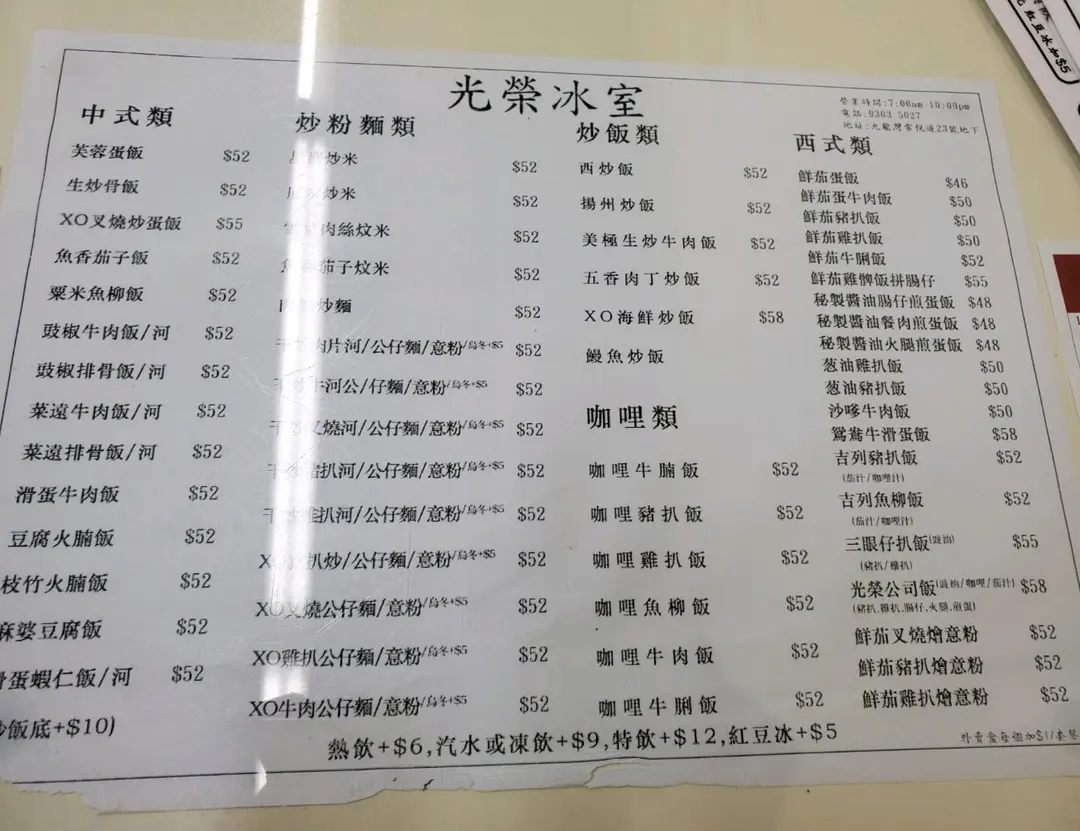 光榮冰室
營業時間:7:00am-10:00pm
電話:9303 5027
地址:九龍灣常悅道23號地下
中式類
芙蓉蛋飯 $52
生炒骨飯 $52
XO叉燒炒蛋飯 $55
魚香茄子飯 $52
粟米魚柳飯 $52
豉椒牛肉飯/河 $52
豉椒排骨飯/河 $52
菜遠牛肉飯/河 $52
菜遠排骨飯/河 $52
滑蛋牛肉飯 $52
豆腐火腩飯 $52
枝竹火腩飯 $52
麻婆豆腐飯 $52
滑蛋蝦仁飯/河 $52
炒飯底+$10)
炒粉麵類
炒米 $52
炒米 $52
肉絲炆米 $52
茄子炆米 $52
炒麵 $52
肉片河/公仔麵/意粉/烏冬+$5 $52
牛河公/仔麵/意粉/烏冬+$5 $52
叉燒河/公仔麵/意粉/烏冬+$5 $52
豬扒河/公仔麵/意粉/烏冬+$5 $52
雞扒河/公仔麵/意粉/烏冬+$5 $52
扒炒/公仔麵/意粉/烏冬+$5 $52
XO叉燒公仔麵/意粉/烏冬+$5 $52
XO雞扒公仔麵/意粉/烏冬+$5 $52
XO牛肉公仔麵/意粉/烏冬+$5 $52
炒飯類
西炒飯 $52
揚州炒飯 $52
美極生炒牛肉飯 $52
五香肉丁炒飯 $52
XO海鮮炒飯 $58
鰻魚炒飯
咖哩類
咖哩牛腩飯 $52
咖哩豬扒飯 $52
咖哩雞扒飯 $52
咖哩魚柳飯 $52
咖哩牛肉飯 $52
咖哩牛脷飯 $52
西式類
鮮茄蛋飯 $46
鮮茄蛋牛肉飯 $50
鮮茄豬扒飯 $50
鮮茄雞扒飯 $50
鮮茄牛脷飯 $52
鮮茄雞髀飯拼腸仔 $55
秘製醬油腸仔煎蛋飯 $48
秘製醬油餐肉煎蛋飯 $48
秘製醬油火腿煎蛋飯 $48
葱油雞扒飯 $50
葱油豬扒飯 $50
沙嗲牛肉飯 $50
鴛鴦牛滑蛋飯 $58
吉列豬扒飯 $52
(茄汁/咖哩汁)
吉列魚柳飯 $52
(茄汁/咖哩汁)
三眼仔扒飯(豉油) $55
(豬扒/雞扒)
光榮公司飯(豉油/咖哩/茄汁) $58
(豬扒,雞扒,腸仔,火腿,煎蛋)
鮮茄叉燒燴意粉 $52
鮮茄豬扒燴意粉 $52
鮮茄雞扒燴意粉 $52
熱飲+$6,汽水或凍飲+$9,特飲+$12,紅豆冰+$5
外賣盒每個加$1/套餐
紅豆冰加$5